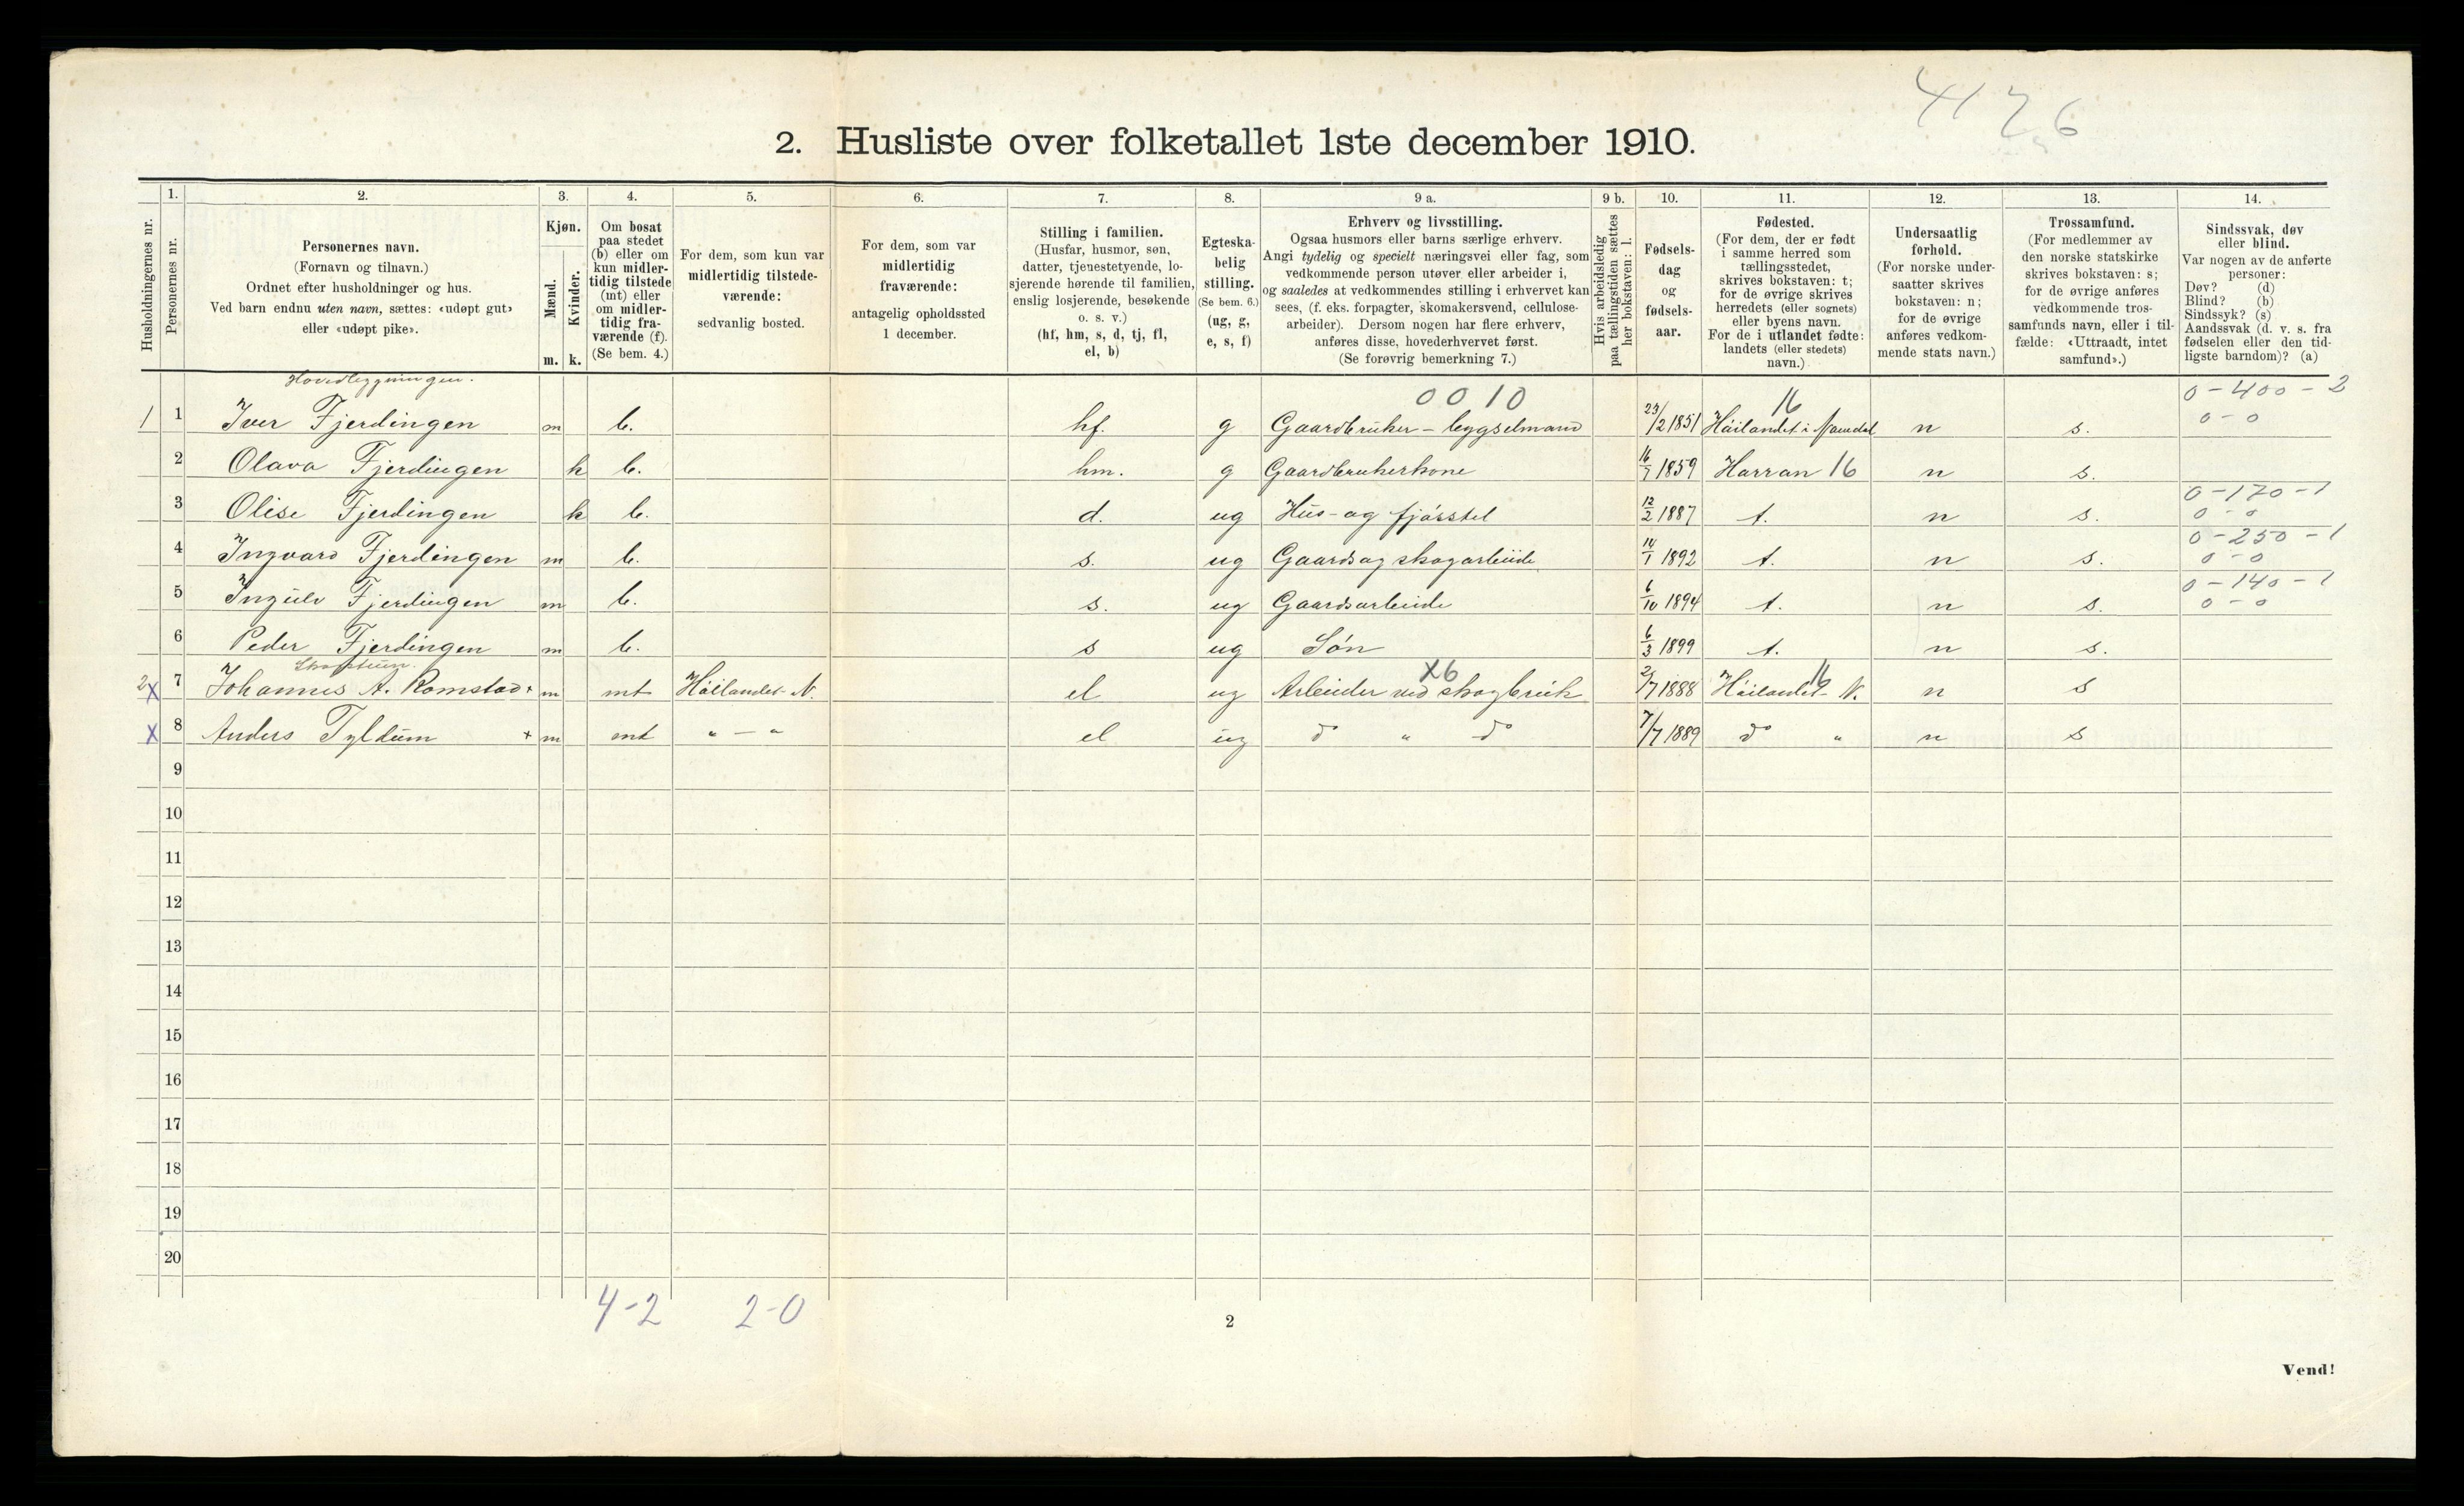 4126
2. Husliste over folketallet 1ste december 1910.
Husholdningernes nr.
1.
Personernes nr.
2.
Personernes navn.
(Fornavn og tilnavn.)
Ordnet efter husholdninger og hus.
Ved barn endnu uten navn, sættes: «udøpt gut»
eller «udøpt pike».
3.
Kjøn.
Mænd.
Kvinder.
m. k.
4.
Om bosat
paa stedet
(b) eller om
kun midler-
tidig tilstede
(mt) eller
om midler-
tidig fra-
værende (f).
(Se bem. 4.)
5.
For dem, som kun var
midlertidig tilstede-
værende:
sedvanlig bosted.
6.
For dem, som var
midlertidig
fraværende:
antagelig opholdssted
1 december.
7.
Stilling i familien.
(Husfar, husmor, søn,
datter, tjenestetyende, lo-
sjerende hørende til familien,
enslig losjerende, besøkende
o. s. v.)
(hf, hm, s, d, tj, fl,
el, b)
8.
Egteska-
belig
stilling.
(Se bem. 6.)
(ug, g,
e, s, f)
9 a.
Erhverv og livsstilling.
Ogsaa husmors eller barns særlige erhverv.
Angi tydelig og specielt næringsvei eller fag, som
vedkommende person utøver eller arbeider i,
og saaledes at vedkommendes stilling i erhvervet kan
sees, (f. eks. forpagter, skomakersvend, cellulose-
arbeider). Dersom nogen har flere erhverv,
anføres disse, hovederhvervet først.
(Se forøvrig bemerkning 7.)
9 b.
Hvis arbeidsledig
paa tællingstiden sættes
her bokstaven: l.
10.
Fødsels-
dag
og
fødsels-
aar.
11.
Fødested.
(For dem, der er født
i samme herred som
tællingsstedet,
skrives bokstaven: t;
for de øvrige skrives
herredets (eller sognets)
eller byens navn.
For de i utlandet fødte:
landets (eller stedets)
navn.)
12.
Undersaatlig
forhold.
(For norske under-
saatter skrives
bokstaven: n;
for de øvrige
anføres vedkom-
mende stats navn.)
13.
Trossamfund.
(For medlemmer av
den norske statskirke
skrives bokstaven: s;
for de øvrige anføres
vedkommende tros-
samfunds navn, eller i til-
fælde: «Uttraadt, intet
samfund».)
14.
Sindssvak, døv
eller blind.
Var nogen av de anførte
personer:
Døv? (d)
Blind? (b)
Sindssyk? (s)
Aandssvak (d. v. s. fra
fødselen eller den tid-
ligste barndom)? (a)
Hovedbygningen.
0010 16 0-400-2
1 1 Iver Fjerdingen m b. hf. g Gaardbruker - bygselmand 23/2 1851 Høilandet i Namdal n s. 0-0
2 Olava Fjerdingen k b. hm. g Gaardbrukerkone 16/7 1859 Harran 16 n s.
0-170-1
3 Olise Fjerdingen k b. d. ug Hus- og fjøsstel 12/2 1887 t. n s. 0-0
0-250-1
4 Ingvard Fjerdingen m b. s. ug Gaards og skogarbeide 14/1 1892 t. n s. 0-0
0-140-1
5 Ingulv Fjerdingen m b. s. ug Gaardsarbeide 6/10 1894 t. n s. 0-0
6 Peder Fjerdingen m b. s ug Søn 6/3 1899 t. n s.
X6 16
2 X 7 Johannes A. Romstad + m mt Høilandet N. el ug Arbeider ved skogbruk 2/7 1888 Høilandet N. n s
X 8 Anders Tyldum + m mt " — " el ug do " do 7/7 1889 do " n s
9
10
11
12
13
14
15
16
17
18
19
20
4-2 2-0
2
Vend!